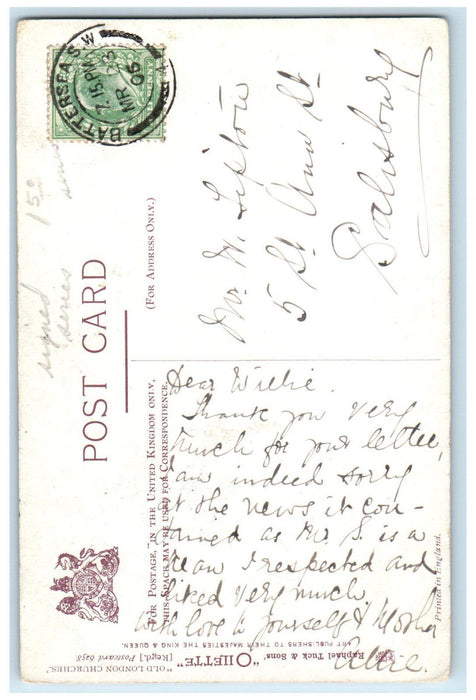 BATTERSEA S.W.
7.15 PM
MR 05
POST CARD
(FOR ADDRESS ONLY.)
FOR POSTAGE, IN THE UNITED KINGDOM ONLY,
THIS SPACE MAY BE USED FOR CORRESPONDENCE.
Mr. W. Lipton
5 St. Anns St
Salisbury
Dear Willie.
Thank you very
much for your letter,
I am indeed sorry
at the news it con-
tained as Mr. S. is a
man I respected and
liked very much
With love to yourself & Mother
Ellie.
"OLD LONDON CHURCHES."
[Regd.] Postcard 6255
"OILETTE"
Raphael Tuck & Sons'
ART PUBLISHERS TO THEIR MAJESTIES THE KING & QUEEN.
Printed in England.
signed
series
15º